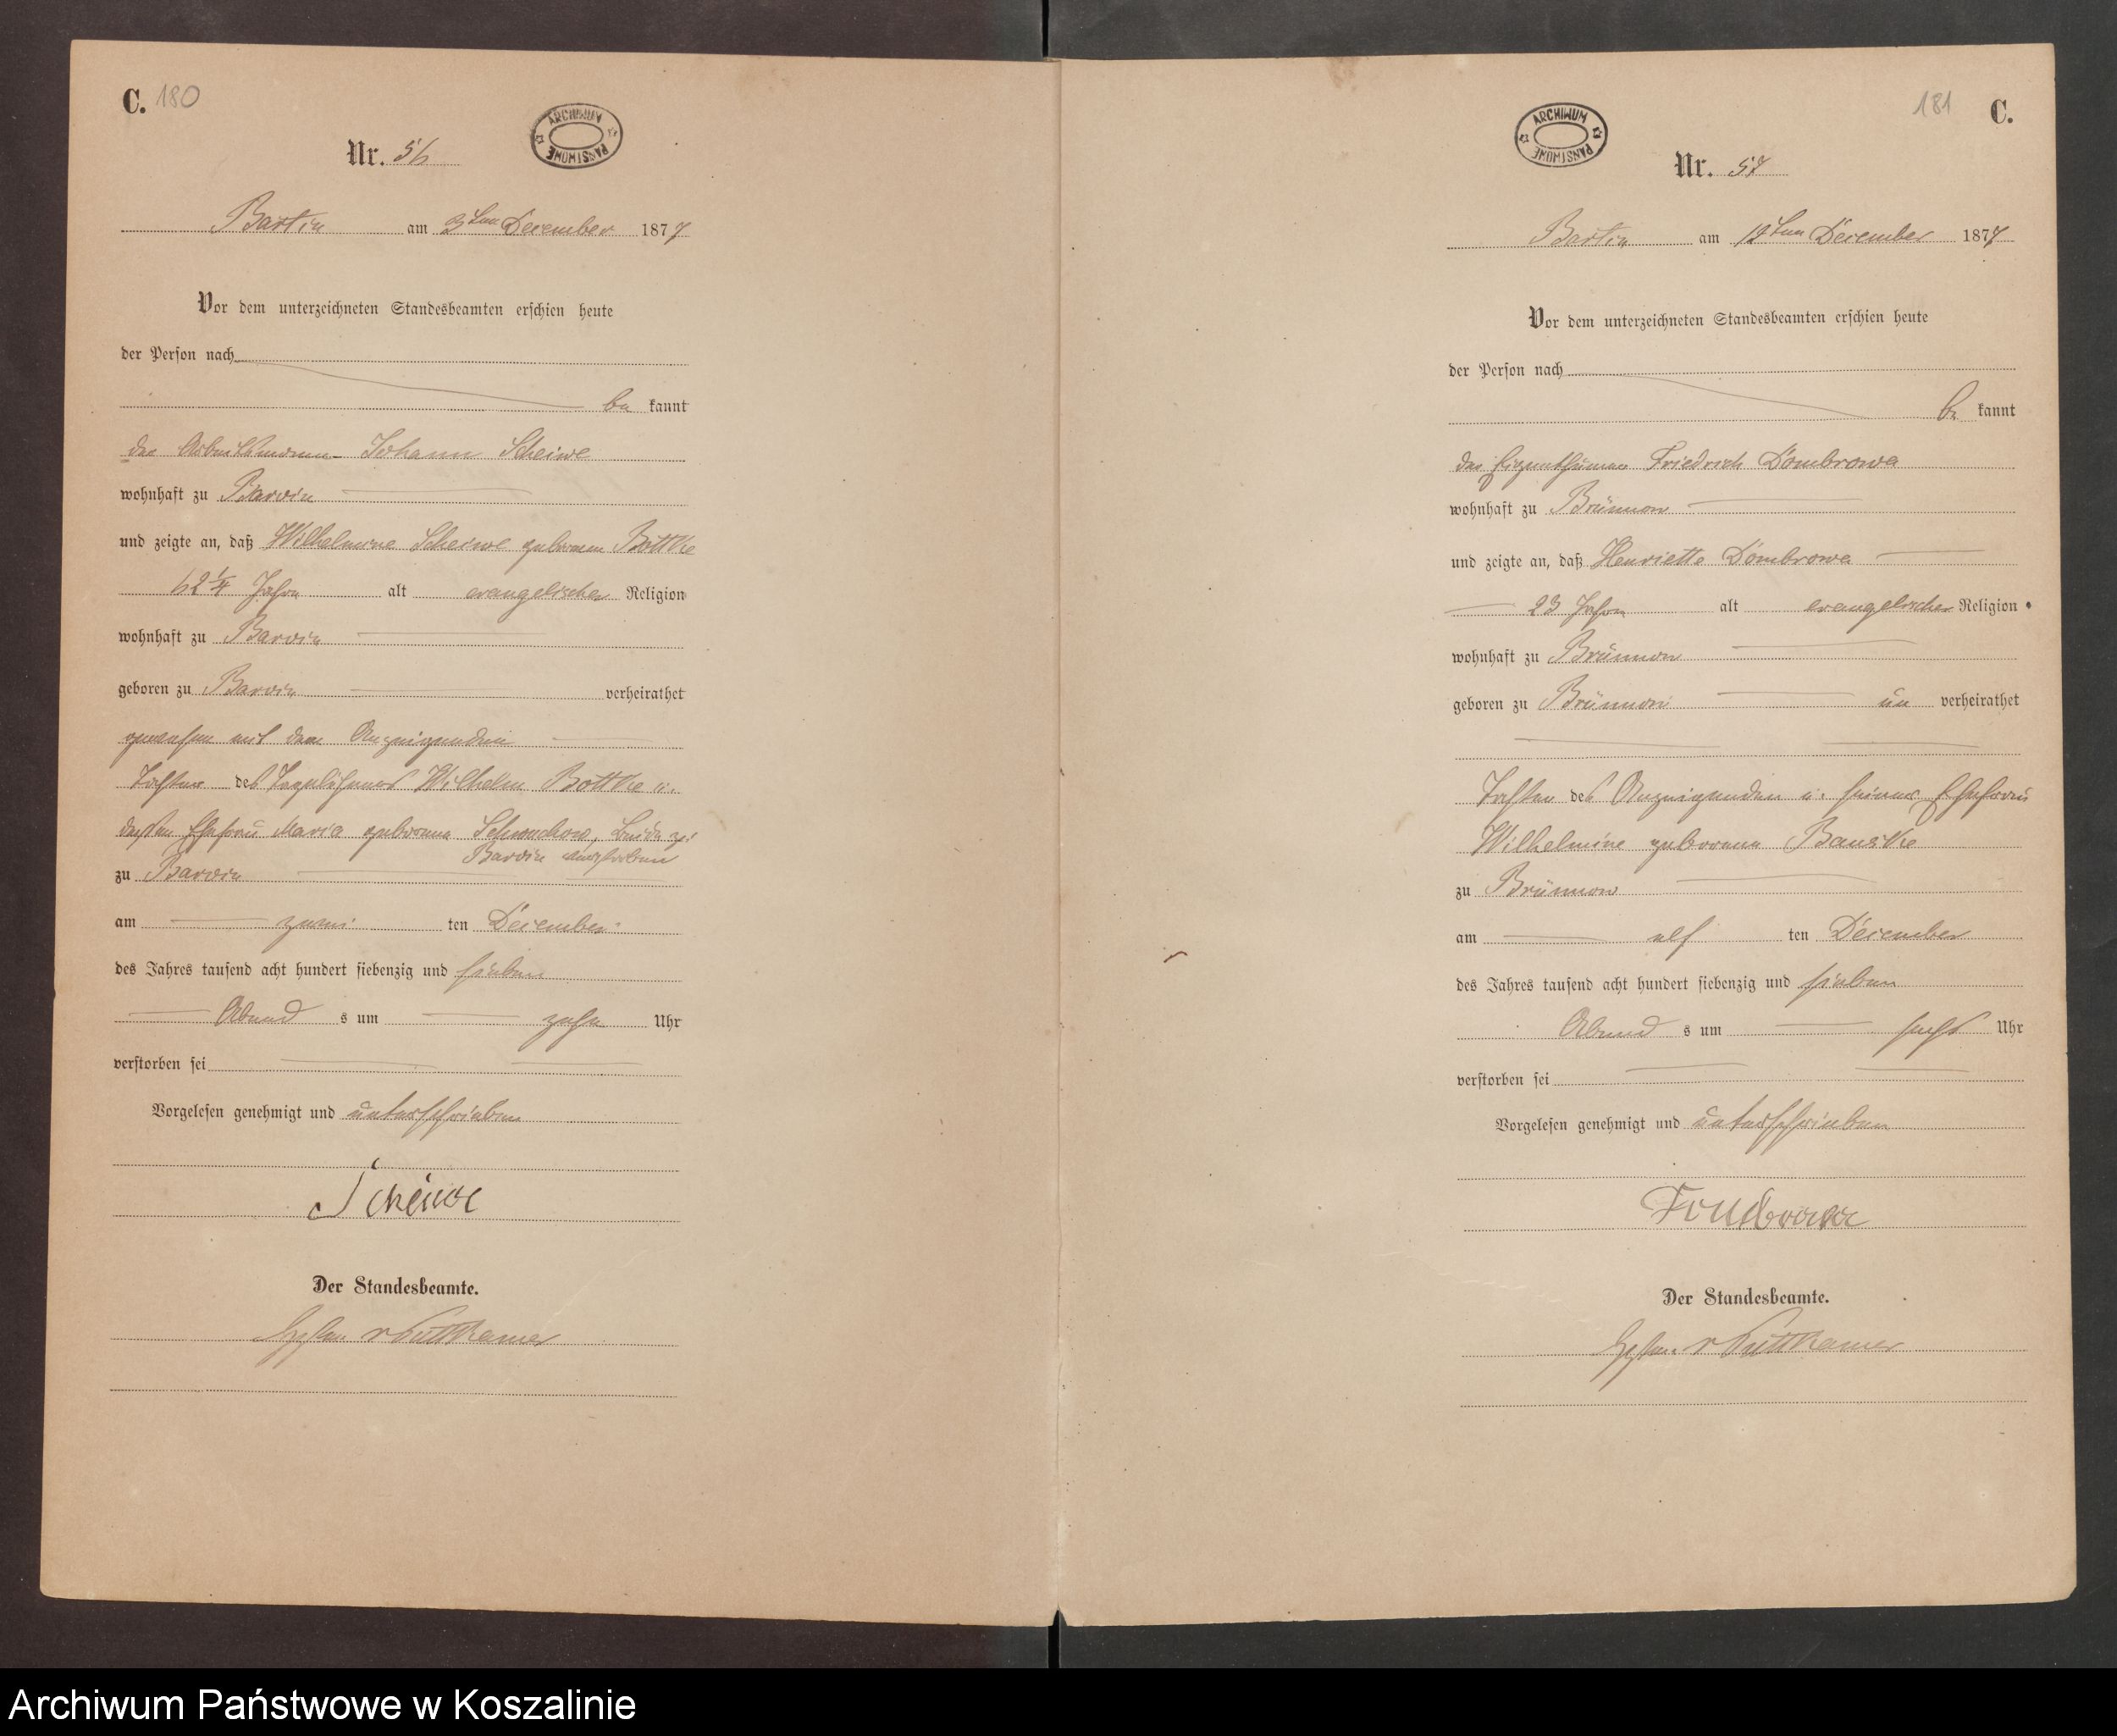 C. 180
ARCHIWUM PAŃSTWOWE
Nr. 56
Bartin am 3ten December 1877
Vor dem unterzeichneten Standesbeamten erschien heute
der Person nach
be kannt
der Arbeitsmann Johann Scheiwe
wohnhaft zu Barvin
und zeigte an, daß Wilhelmine Scheiwe geborene Bottke
62 1/4 Jahre alt evangelischer Religion
wohnhaft zu Barvin
geboren zu Barvin verheirathet
gewesen mit dem Anzeigenden
Tochter des Wilhelm Bottke u.
dessen Ehefrau Maria geborene beide zu
Barvin verstorben
zu Barvin
am zwei ten December
des Jahres tausend acht hundert siebenzig und sieben
Abend s um zehn Uhr
verstorben sei
Vorgelesen genehmigt und unterschrieben
Scheiwe
Der Standesbeamte.
v Puttkamer
181 C.
ARCHIWUM PAŃSTWOWE
Nr. 57
Bartin am 12ten December 1877
Vor dem unterzeichneten Standesbeamten erschien heute
der Person nach
be kannt
der Eigenthümer Friedrich Dombrowa
wohnhaft zu Brünnow
und zeigte an, daß Henriette Dombrowa
23 Jahre alt evangelischer Religion
wohnhaft zu Brünnow
geboren zu Brünnow un verheirathet
Tochter des Anzeigenden u. seiner Ehefrau
Wilhelmine geborene Bauske
zu Brünnow
am elf ten December
des Jahres tausend acht hundert siebenzig und sieben
Abend s um sechs Uhr
verstorben sei
Vorgelesen genehmigt und unterschrieben
Dombrowa
Der Standesbeamte.
v Puttkamer
Archiwum Państwowe w Koszalinie